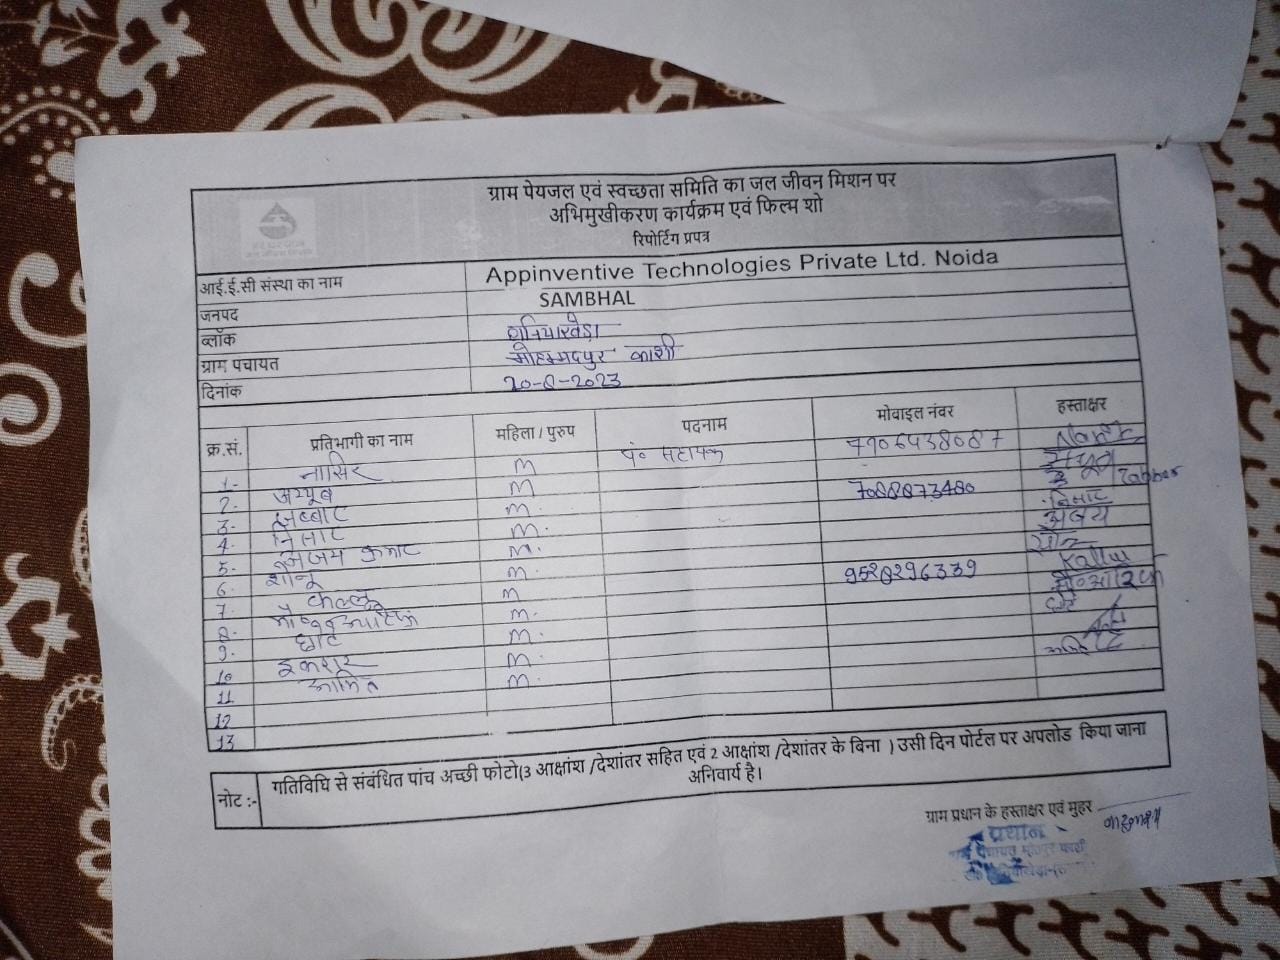 ग्राम पेयजल एवं स्वच्छता समिति का जल जीवन मिशन पर
अभिमुखीकरण कार्यक्रम एवं फिल्म शो
रिपोर्टिंग प्रपत्र
आई.ई.सी संस्था का नाम Appinventive Technologies Private Ltd. Noida
जनपद SAMBHAL
ब्लॉक बनियाखेड़ा
ग्राम पचायत मोहम्मदपुर काशी
दिनांक 20-6-2023
क्र.सं. प्रतिभागी का नाम महिला / पुरुप पदनाम मोवाइल नंवर हस्ताक्षर
1- नासिर M पं० सहायक 7906438087
2- अय्यूब M
3- जब्बार M 7088873480 Zabbar
4- निसार M निसार
5- अजय कुमार M अजय
6- शानू M
7- कल्लू M 9528296339 Kallu
8- M
9- छोटे M छोटे
10 इकरार M
11 आमित M
12
13
नोट :- गतिविधि से संवंधित पांच अच्छी फोटो(3 आक्षांश /देशांतर सहित एवं 2 आक्षांश /देशांतर के विना ) उसी दिन पोर्टल पर अपलोड किया जाना
अनिवार्य है।
ग्राम प्रधान के हस्ताक्षर एवं मुहर
प्रधान